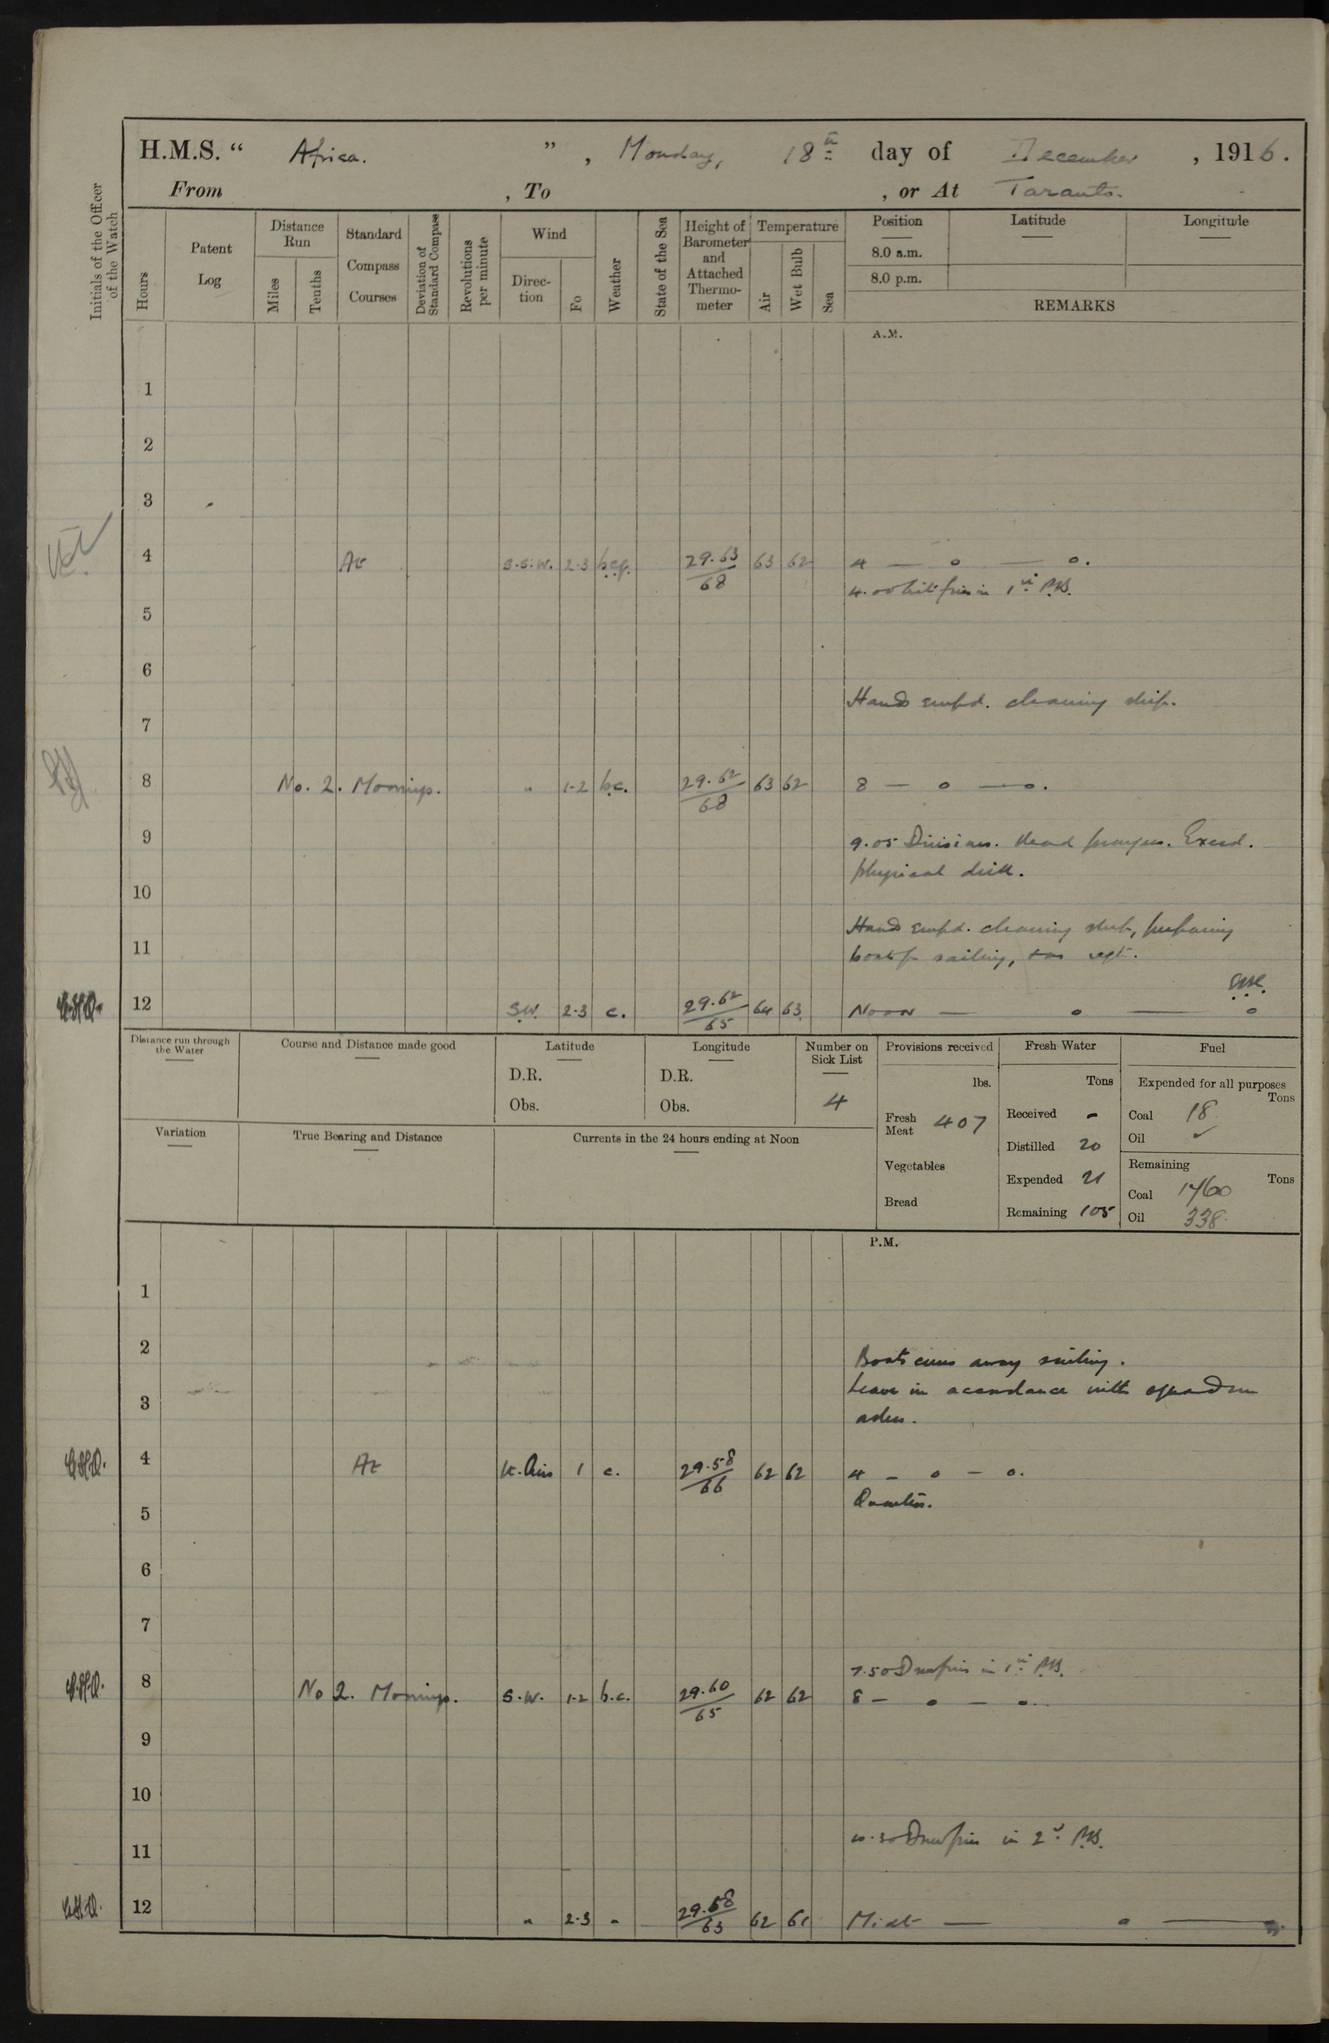 H.M.S. " Africa. " , Monday, 18th day of December , 1916.
From , To , or At Taranto.
Initials of the Officer of the Watch
Hours
Patent Log
Distance Run
Miles
Tenths
Standard Compass Courses
Deviation of Standard Compass
Revolutions per minute
Wind
Direction
Fo
Weather
State of the Sea
Height of Barometer and Attached Thermometer
Temperature
Air
Wet Bulb
Sea
Position Latitude Longitude
8.0 a.m.
8.0 p.m.
REMARKS
A.M.
1
2
3
4 At S.S.W. 2-3 b.c.p. 29.63/68 63 62 4 — o — o.
4.00 Lit fires in 1st P.B.
5
6
Hands empd. cleaning ship.
7
8 No. 2. Moorings. " 1-2 b.c. 29.62/68 63 62 8 — o — o.
9
9.05 Divisions. Read prayers. Exerd.
physical drill.
10
Hands empd. cleaning ship, preparing
11
boats for sailing, & as reqt.
12 S.W. 2-3 c. 29.62/65 64 63 Noon — o — o
Distance run through the Water
Course and Distance made good
Latitude
D.R.
Obs.
Longitude
D.R.
Obs.
Number on Sick List
4
Provisions received
lbs.
Fresh Meat 407
Vegetables
Bread
Fresh Water
Tons
Received -
Distilled 20
Expended 21
Remaining 105
Fuel
Expended for all purposes
Tons
Coal 18
Oil ✓
Remaining
Tons
Coal 1760
Oil 338
Variation
True Bearing and Distance
Currents in the 24 hours ending at Noon
P.M.
1
2
Boats crews away sailing.
Leave in accordance with squadron
3
orders.
4 At Lt. Airs 1 c. 29.58/66 62 62 4 — o — o.
Quarters.
5
6
7
7.50 Drew fires in 1st P.B.
8 No 2. Moorings. S.W. 1-2 b.c. 29.60/65 62 62 8 — o — o.
9
10
10.30 Drew fires in 2d P.B.
11
12 " 2-3 " 29.58/63 62 61 Midt — o —